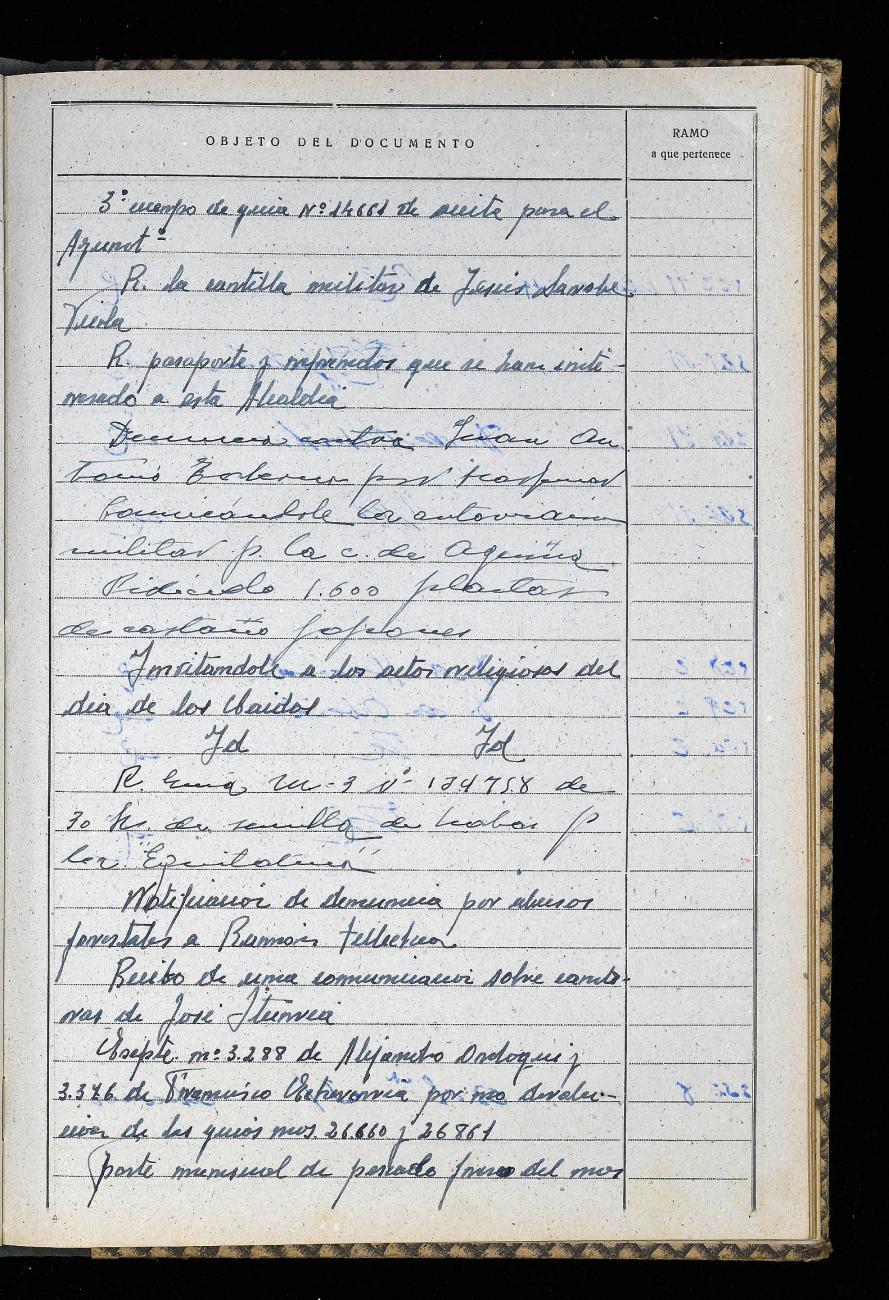 OBJETO DEL DOCUMENTO
RAMO
a que pertenece
3º cuerpo de guia Nº 14661 de aceite para el
Ayunt º
R. la cartilla militar de Jesús
R. pasaporte y que se han inte-
resado a esta Alcaldia
Denuncia contra Juan An
tonio por
Comunicándole la
militar p. la c. de
Pidiendo 1.600 plantas
de castaño japones
Invitandole a los actos religiosos del
dia de los Caidos
Id Id
R. Guia M-3 Nº 134758 de
30 ks de semilla de habas p
la "Equitativa"
Notificacion de denuncia por abusos
forestales a Ramón Tellechea
Recibo de una comunicacion sobre carte-
ras de José Iturria
Expte. nº 3.288 de Alejandro Ordoqui y
3.376 de Francisco Echeverria por no devolu-
cion de las guias nos. 26.660 y 26861
parte mensual de del mes